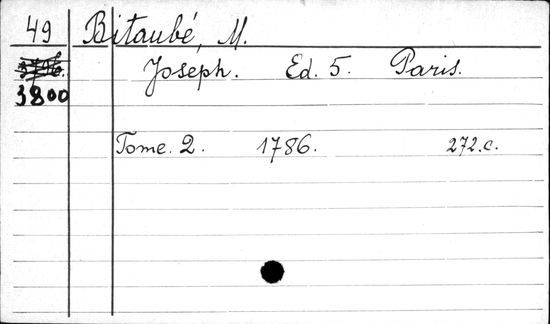 49 Bitaubé, M.
Joseph. Ed. 5. Paris.
3800
Tome. 2. 1786. 272.c.